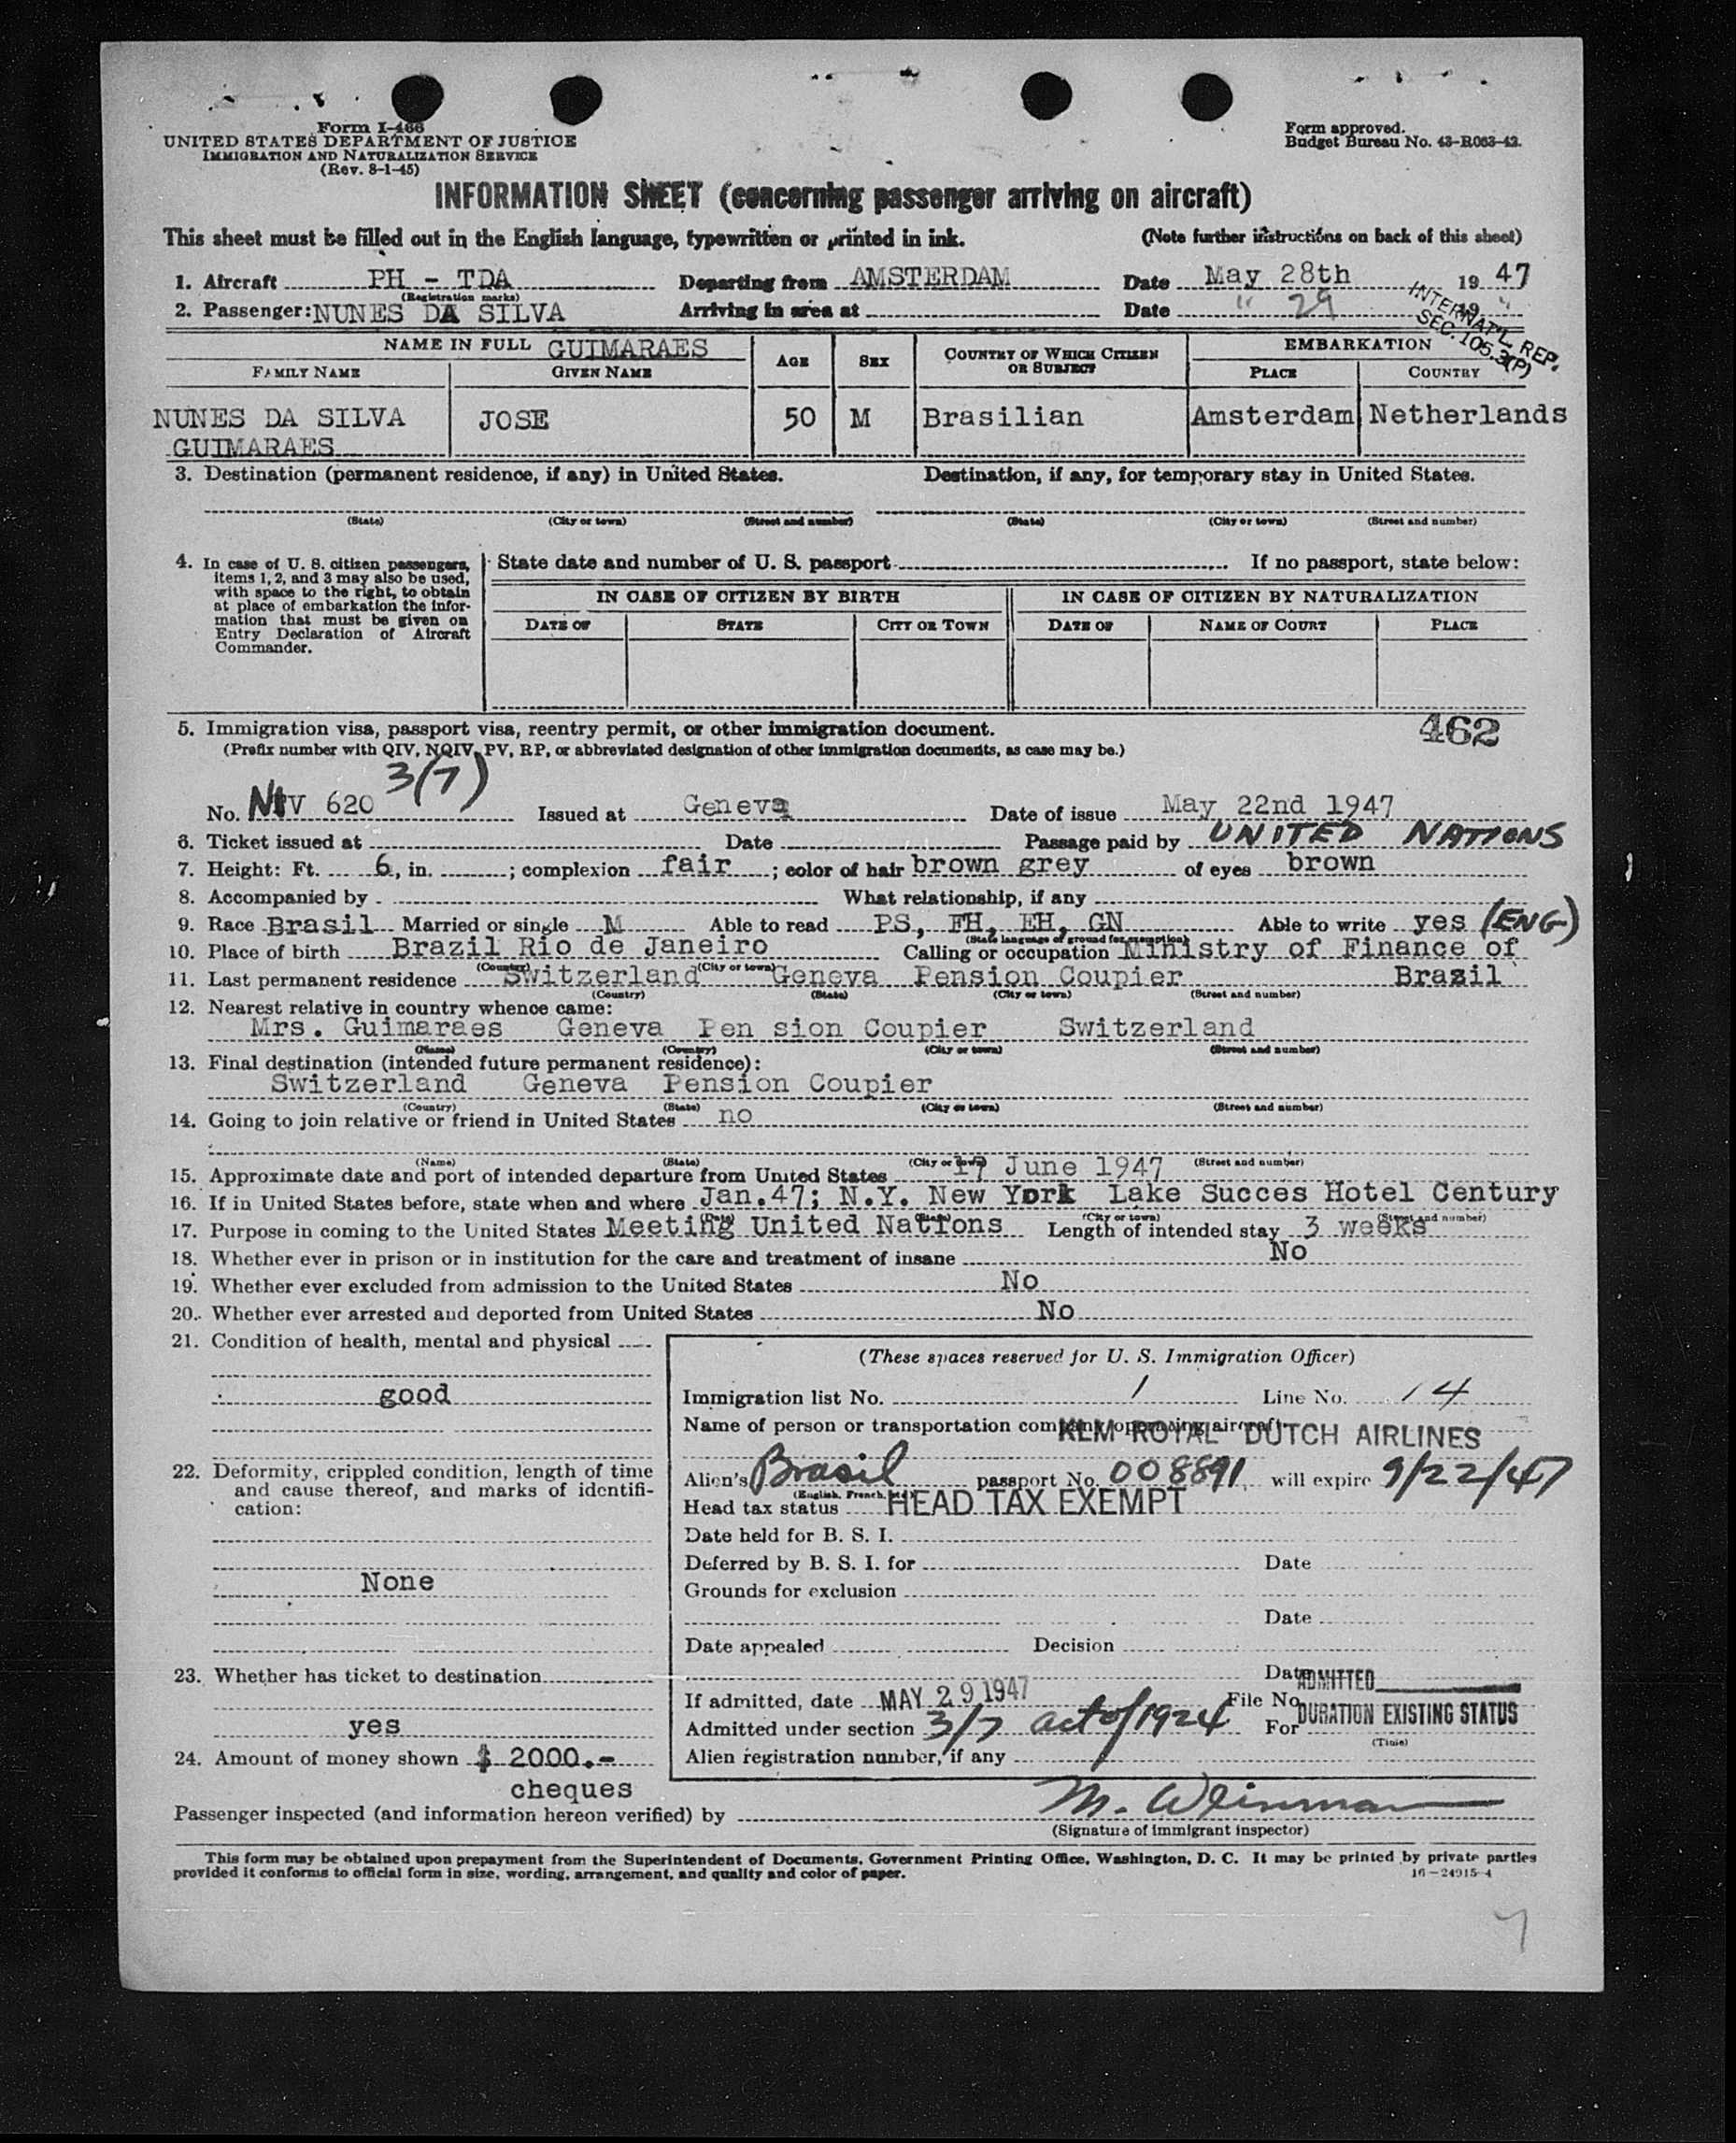 Form I-466
UNITED STATES DEPARTMENT OF JUSTICE
IMMIGRATION AND NATURALIZATION SERVICE
(Rev. 8-1-45)
Form approved.
Budget Bureau No. 43-R063-42.
INFORMATION SHEET (concerning passenger arriving on aircraft)
This sheet must be filled out in the English language, typewritten or printed in ink. (Note further instructions on back of this sheet)
1. Aircraft PH - TDA Departing from AMSTERDAM Date May 28th 19 47
(Registration marks)
2. Passenger: NUNES DA SILVA Arriving in area at Date " 29 19 "
INTERNAT'L. REP.
SEC. 105.3(P)
NAME IN FULL GUIMARAES AGE SEX COUNTRY OF WHICH CITIZEN OR SUBJECT EMBARKATION
FAMILY NAME GIVEN NAME PLACE COUNTRY
NUNES DA SILVA JOSE 50 M Brasilian Amsterdam Netherlands
GUIMARAES
3. Destination (permanent residence, if any) in United States. Destination, if any, for temporary stay in United States.
(State) (City or town) (Street and number) (State) (City or town) (Street and number)
4. In case of U. S. citizen passengers, items 1, 2, and 3 may also be used, with space to the right, to obtain at place of embarkation the information that must be given on Entry Declaration of Aircraft Commander.
State date and number of U. S. passport If no passport, state below:
IN CASE OF CITIZEN BY BIRTH IN CASE OF CITIZEN BY NATURALIZATION
DATE OF STATE CITY OR TOWN DATE OF NAME OF COURT PLACE
5. Immigration visa, passport visa, reentry permit, or other immigration document. 462
(Prefix number with QIV, NQIV, PV, RP, or abbreviated designation of other immigration documents, as case may be.)
3(7)
No. NIV 620 Issued at Geneva Date of issue May 22nd 1947
6. Ticket issued at Date Passage paid by UNITED NATIONS
7. Height: Ft. 6, in. ; complexion fair ; color of hair brown grey of eyes brown
8. Accompanied by What relationship, if any
9. Race Brasil Married or single M Able to read PS, FH, EH, GN Able to write yes (ENG)
(State language or ground for exemption)
10. Place of birth Brazil Rio de Janeiro Calling or occupation Ministry of Finance of
(Country) (City or town)
11. Last permanent residence Switzerland Geneva Pension Coupier Brazil
(Country) (State) (City or town) (Street and number)
12. Nearest relative in country whence came:
Mrs. Guimaraes Geneva Pen sion Coupier Switzerland
(Name) (Country) (City or town) (Street and number)
13. Final destination (intended future permanent residence):
Switzerland Geneva Pension Coupier
(Country) (State) (City or town) (Street and number)
14. Going to join relative or friend in United States no
(Name) (State) (City or town) (Street and number)
15. Approximate date and port of intended departure from United States 17 June 1947
16. If in United States before, state when and where Jan.47; N.Y. New York Lake Succes Hotel Century
(State) (City or town) (Street and number)
17. Purpose in coming to the United States Meeting United Nations Length of intended stay 3 weeks
18. Whether ever in prison or in institution for the care and treatment of insane No
19. Whether ever excluded from admission to the United States No
20. Whether ever arrested and deported from United States No
21. Condition of health, mental and physical
good
22. Deformity, crippled condition, length of time and cause thereof, and marks of identification:
None
23. Whether has ticket to destination
yes
24. Amount of money shown $ 2000.-
cheques
(These spaces reserved for U. S. Immigration Officer)
Immigration list No. 1 Line No. 14
Name of person or transportation company operating aircraft
KLM ROYAL DUTCH AIRLINES
Alien's Brasil passport No. 008891 will expire 9/22/47
(English, French, etc.)
Head tax status HEAD TAX EXEMPT
Date held for B. S. I.
Deferred by B. S. I. for Date
Grounds for exclusion
Date
Date appealed Decision
Date ADMITTED
If admitted, date MAY 29 1947 File No.
Admitted under section 3/7 act of 1924 For DURATION EXISTING STATUS
(Time)
Alien registration number, if any
Passenger inspected (and information hereon verified) by M. Weinman
(Signature of immigrant inspector)
This form may be obtained upon prepayment from the Superintendent of Documents, Government Printing Office, Washington, D. C. It may be printed by private parties
provided it conforms to official form in size, wording, arrangement, and quality and color of paper. 16-24915-4
7